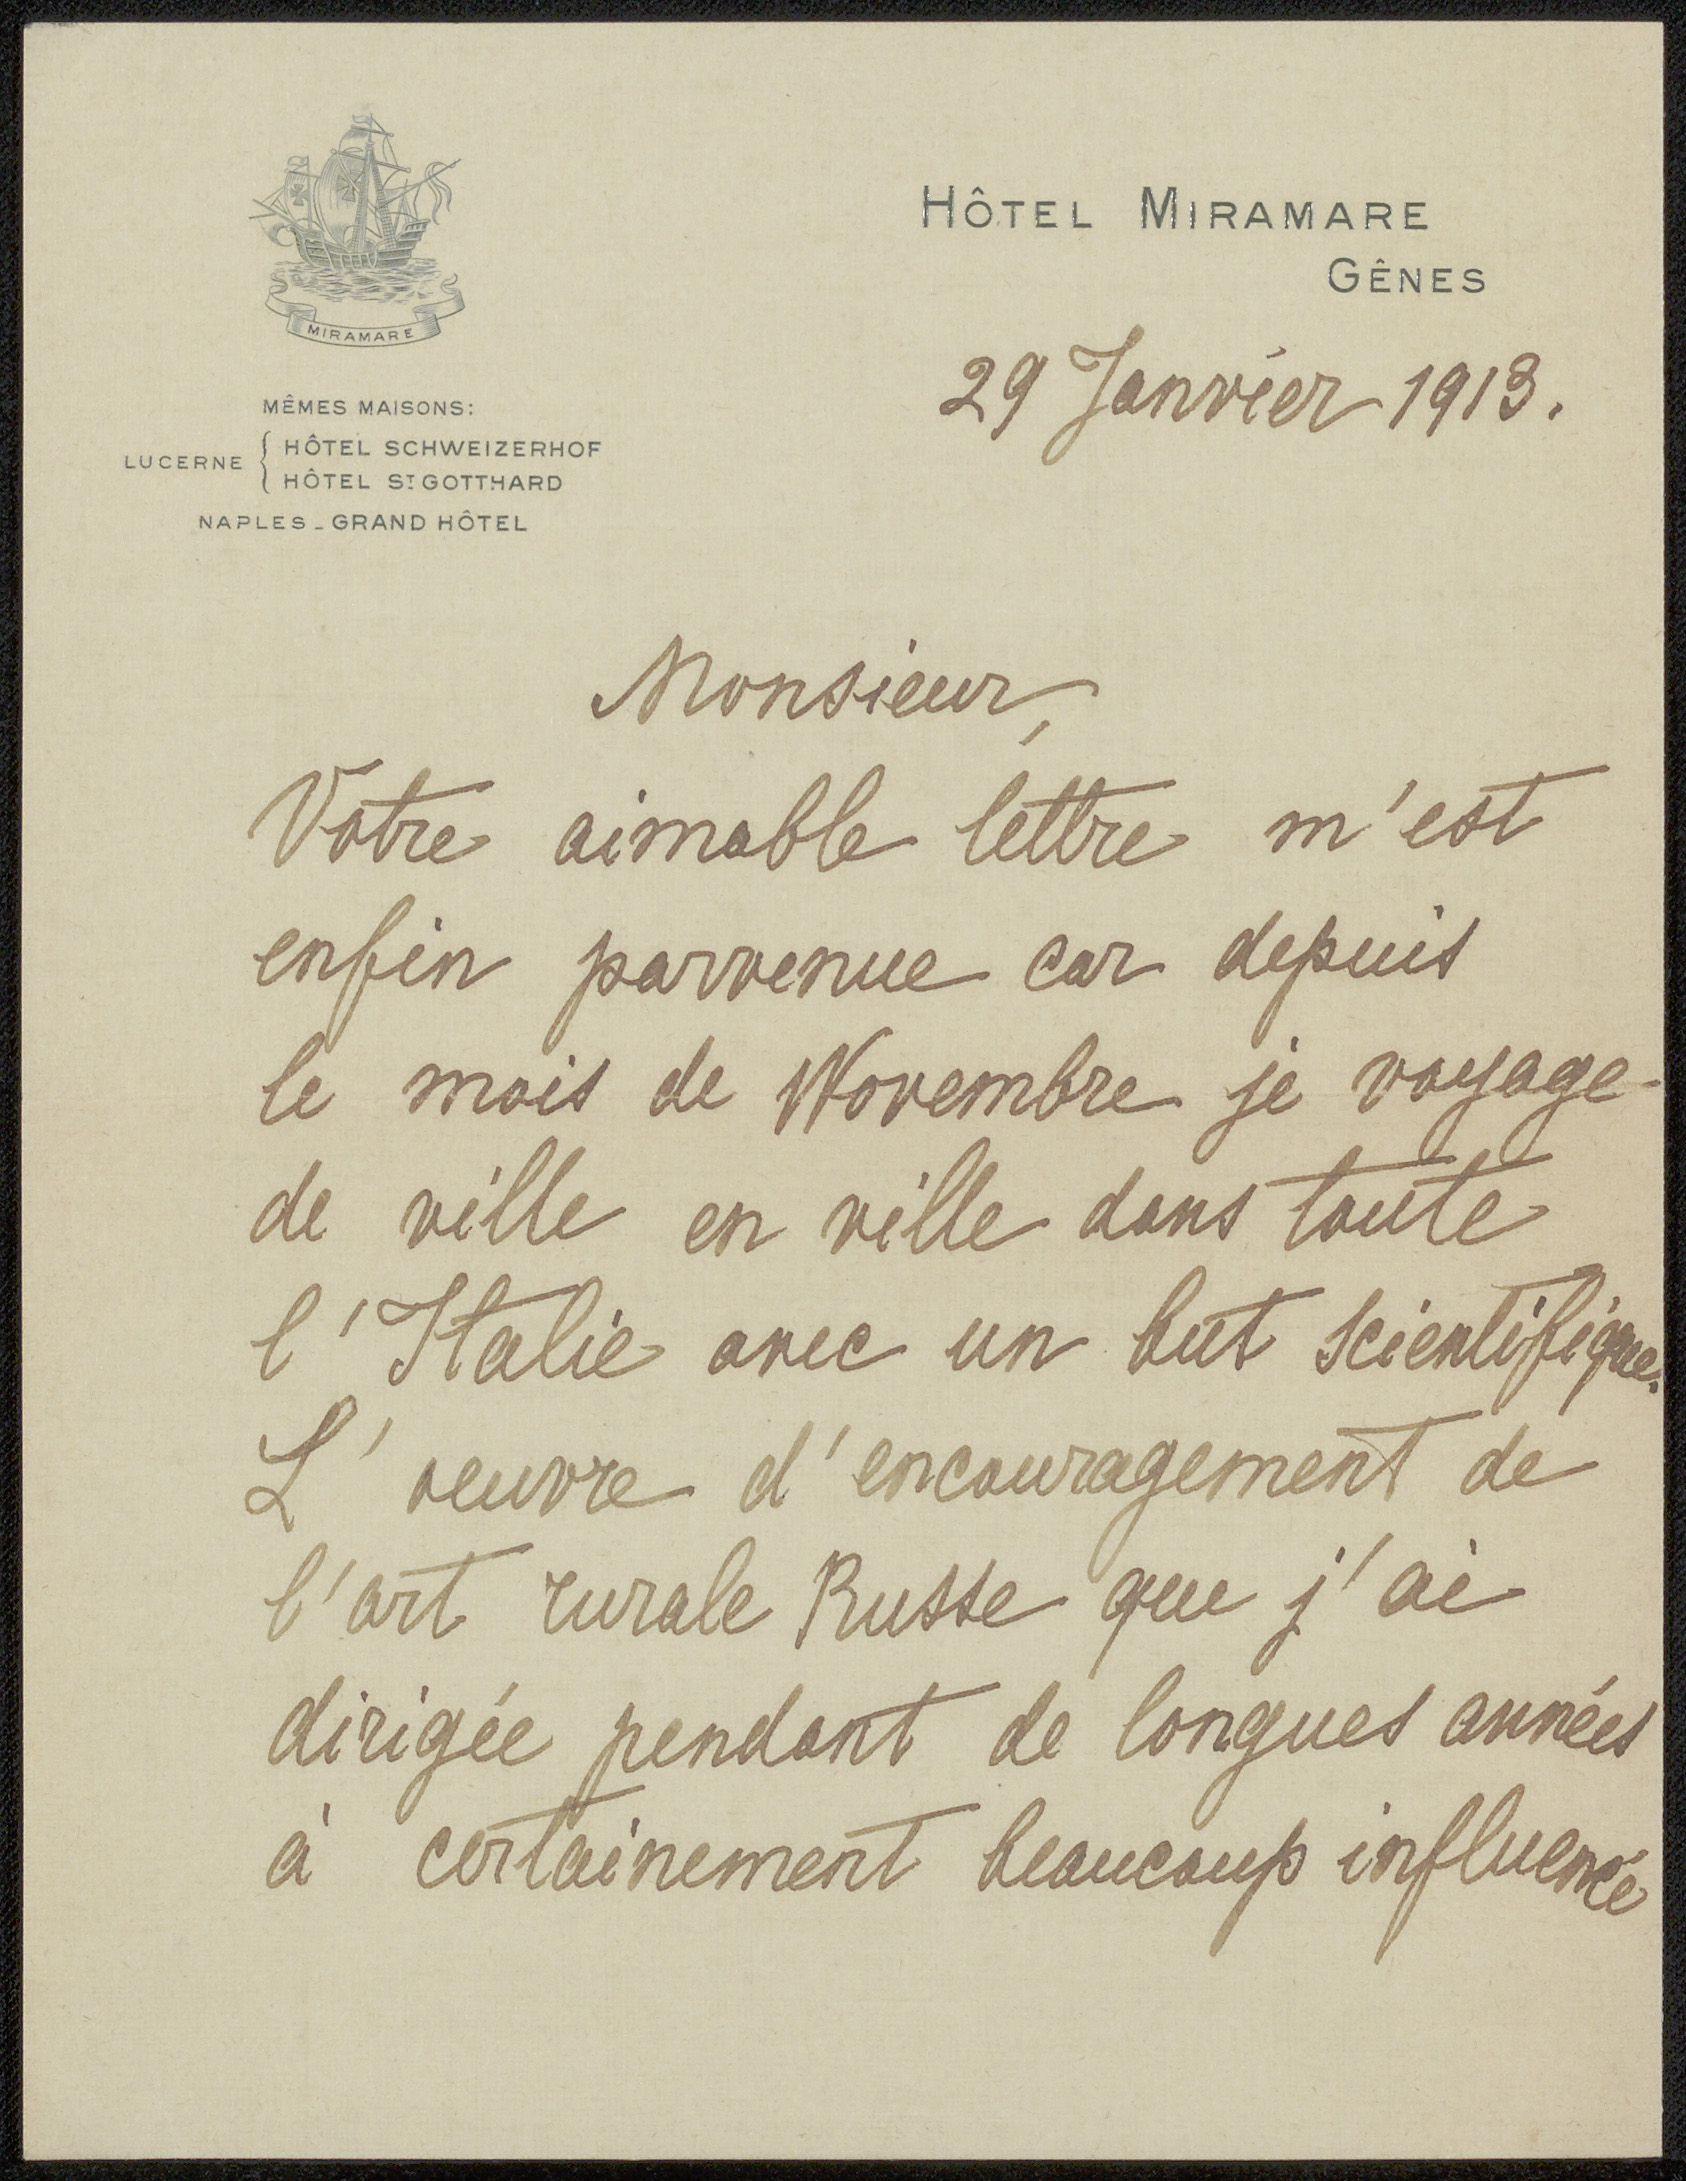 MIRAMARE
MÊMES MAISONS:
LUCERNE { HÔTEL SCHWEIZERHOF
HÔTEL ST GOTTHARD
NAPLES - GRAND HÔTEL
HÔTEL MIRAMARE
GÊNES
29 Janvier 1913.
Monsieur,
Votre aimable lettre m'est
enfin parvenue car depuis
le mois de Novembre je voyage
de ville en ville dans toute
l'Italie avec un but scientifique.
L'oeuvre d'encouragement de
l'art rurale Russe que j'ai
dirigée pendant de longues années
à certainement beaucoup influencé